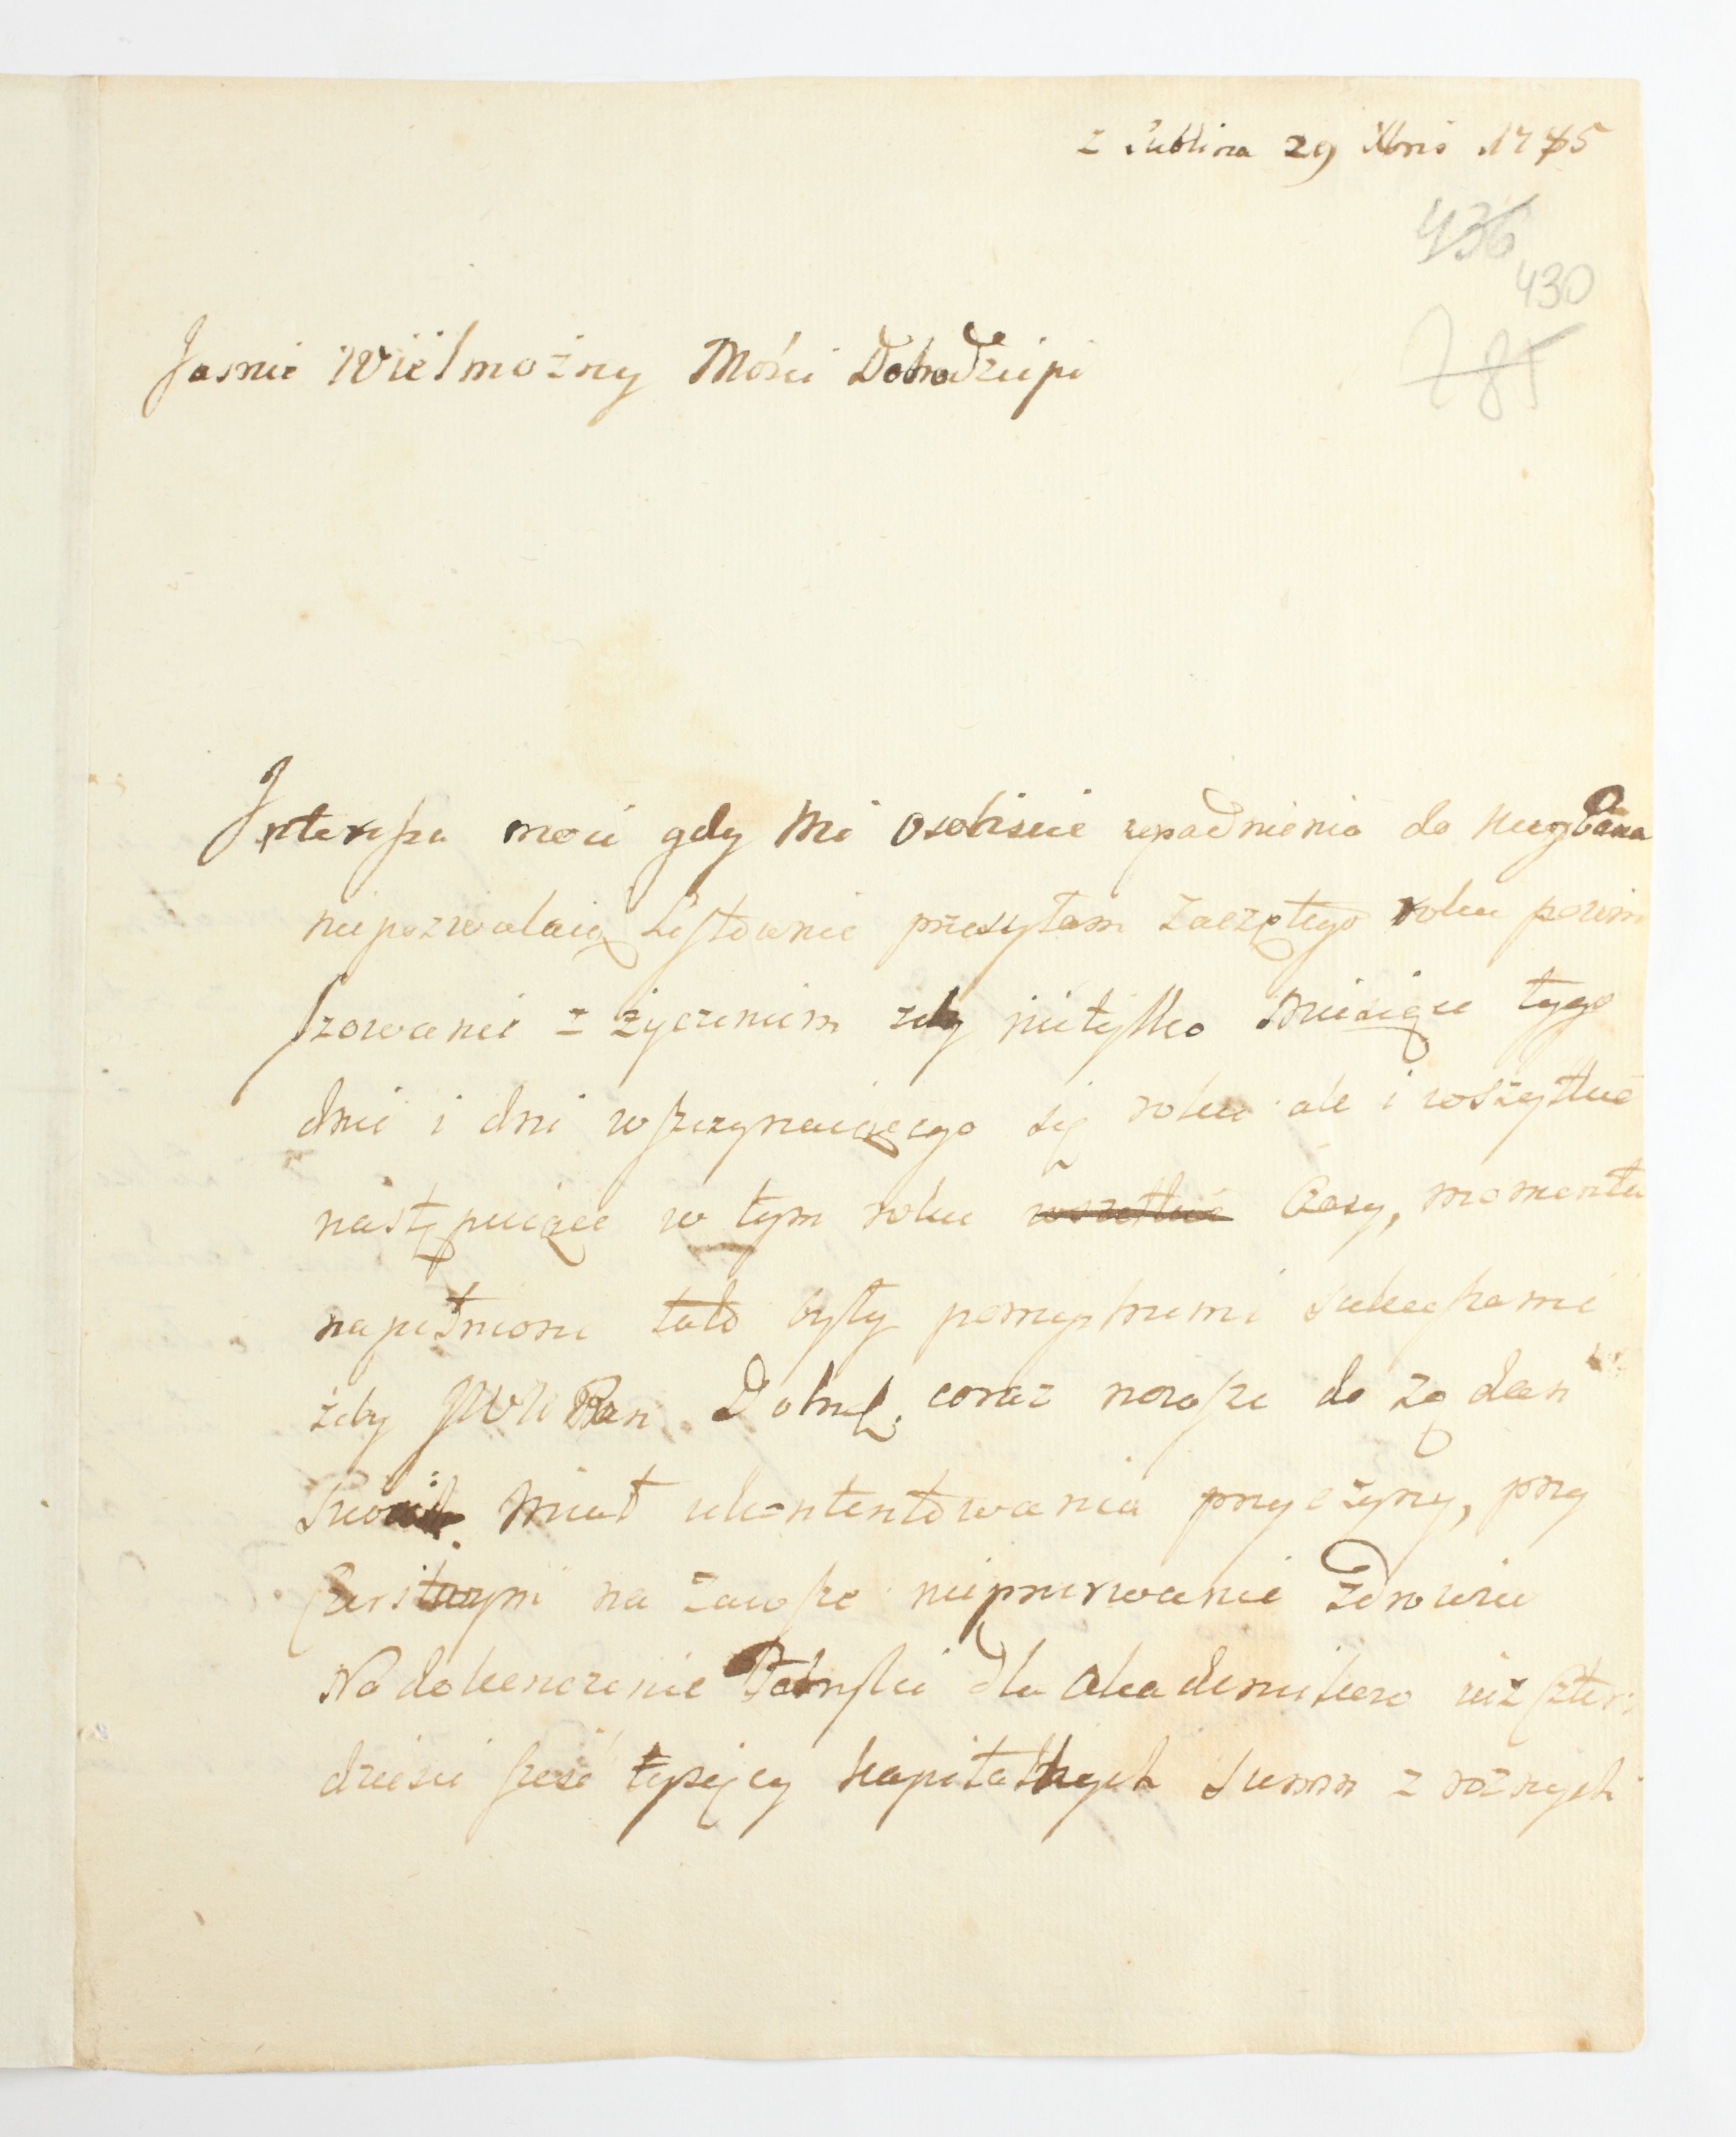 z Lublina 29 Xbris 1775
436
430
785
Jasnie Wielmożny Mósci Dobrodzieju
Interessa moie gdy mi osobiscie upadnienia do nug Pana
niepozwalaią Listownie przesyłam zaczętego roku powin
szowanie z życzeniem zeby nietylko Miesiące tygo
dnie i dni wszczynaiącego się roku ale i wszytkie
następuiące w tym roku wszetkie Czasy, momenta
napełnione tak były pomyslnemi sukcessami
żeby JWW Pan Dobrdz. coraz nowsze do ządan
swoich Miał ukontentowania przyczyny, przy
Czerstwym na zawsze nieprzerwanie zdrowiu
Na dokonczenie Fabryki dla Akademikow iuż Czter
dziesci szesć tysięcy kapitalnych Summ z roznych